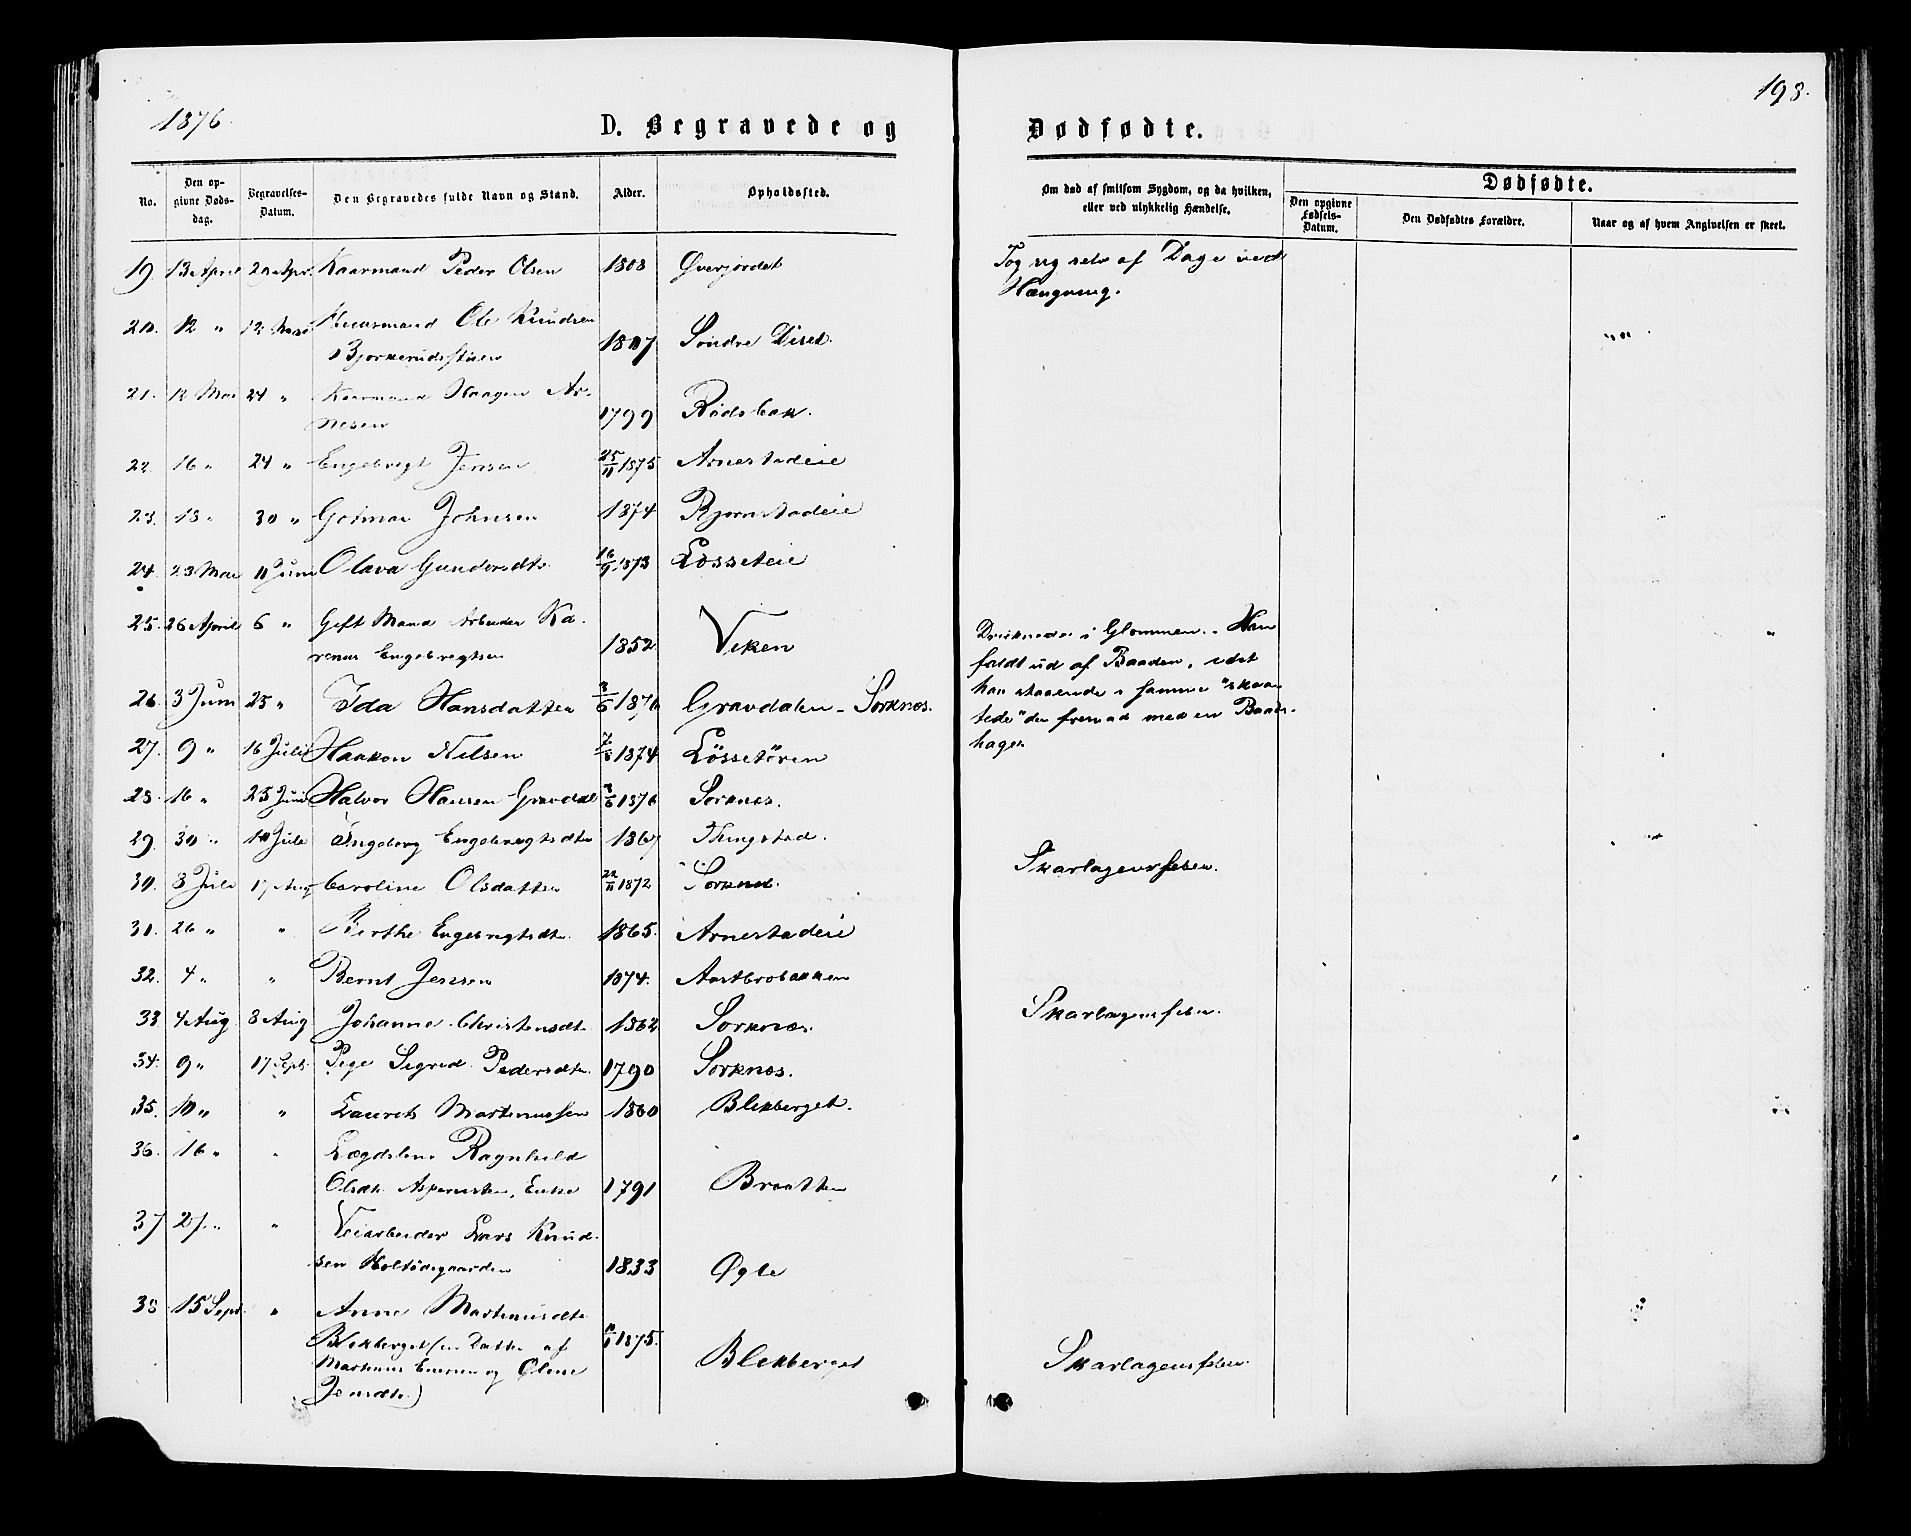 1876.
198.
D. Begravede og
Dødfødte.
No.
Den opgivne Dødsdag.
Begravelses-Datum.
Den Begravedes fulde Navn og Stand.
Alder.
Opholdssted.
Om død af smitsom Sygdom, og da hvilken,
eller ved ulykkelig Hændelse.
Dødfødte.
Den opgivne Fødsels-Datum.
Den Dødfødtes Forældre.
Naar og af hvem Angivelsen er skeet.
19. 13 April Kaarmand Peder Olsen 1808 Øverjordet Tog sig selv af Dage ved
Hængning.
20. 12 " 12 Mai Ole Knudsen
1807 Søndre Diset.
21. 12 Mai 24 " Kaarmand Haagen Ar-
nesen 1799 Rødsbak.
22. 16 " 24 " Engebregt Jensen 25/11 1875 Arnestadeie
23. 13 " 30 " Gotmar Johnsen 1874 Bjørnstadeie
24. 23 Mai 11 Juni Olava Gundersdtr. 16/9 1873 Løsseteie
25. 26 April 6 " Gift Mand Arbeider Ka-
renus Engebregtsen 1852 Viken Druknede i Glommen. Han
faldt ud af Baaden, idet
han staaende i samme "skaa-
tede" den fremad med en Baads-
hage.
26. 3 Juni 25 " Ida Hansdatter 1876 Gravdalen - Sorknes.
27. 9 " 16 Juli Haakon Nilsen 1874 Løssetøren
28. 16 " 25 Juni Halvor Hansen Gravdal 1876 Sorknes.
29. 30 " 10 Juli Ingeborg Engebregtsdtr 1867 Thingstad.
30. 8 Juli 17 Aug Caroline Olsdatter 22/11 1872 Sorknes. Skarlagensfeber.
31. 26 " " Berthe Engebregtsdtr. 1865. Arnestadeie
32. 4 " " Bernt Jensen 1874. Aastbrobakken
33 4 Aug 8 Aug Johanne Christensdtr 1862 Sorknes. Skarlagensfeber.
34. 9 " 17 Sept. Pige Sigrid Pedersdtr. 1790 Sorknes.
35. 10 " " Laurets Martinussen 1860 Blekberget.
36. 16 " " Lægdslem Ragnhild
Olsdtr. Enke 1791 Braatten
37 27. " " Veiarbeider Lars Knud-
sen Holtødegaarden 1833 Øgle
38 15 Sept. " Anne Martinusdtr
Blekberget (en Datter af
Martinus Enersen og Oline
Jensdtr.) 1875. Blekberget Skarlagensfeber.